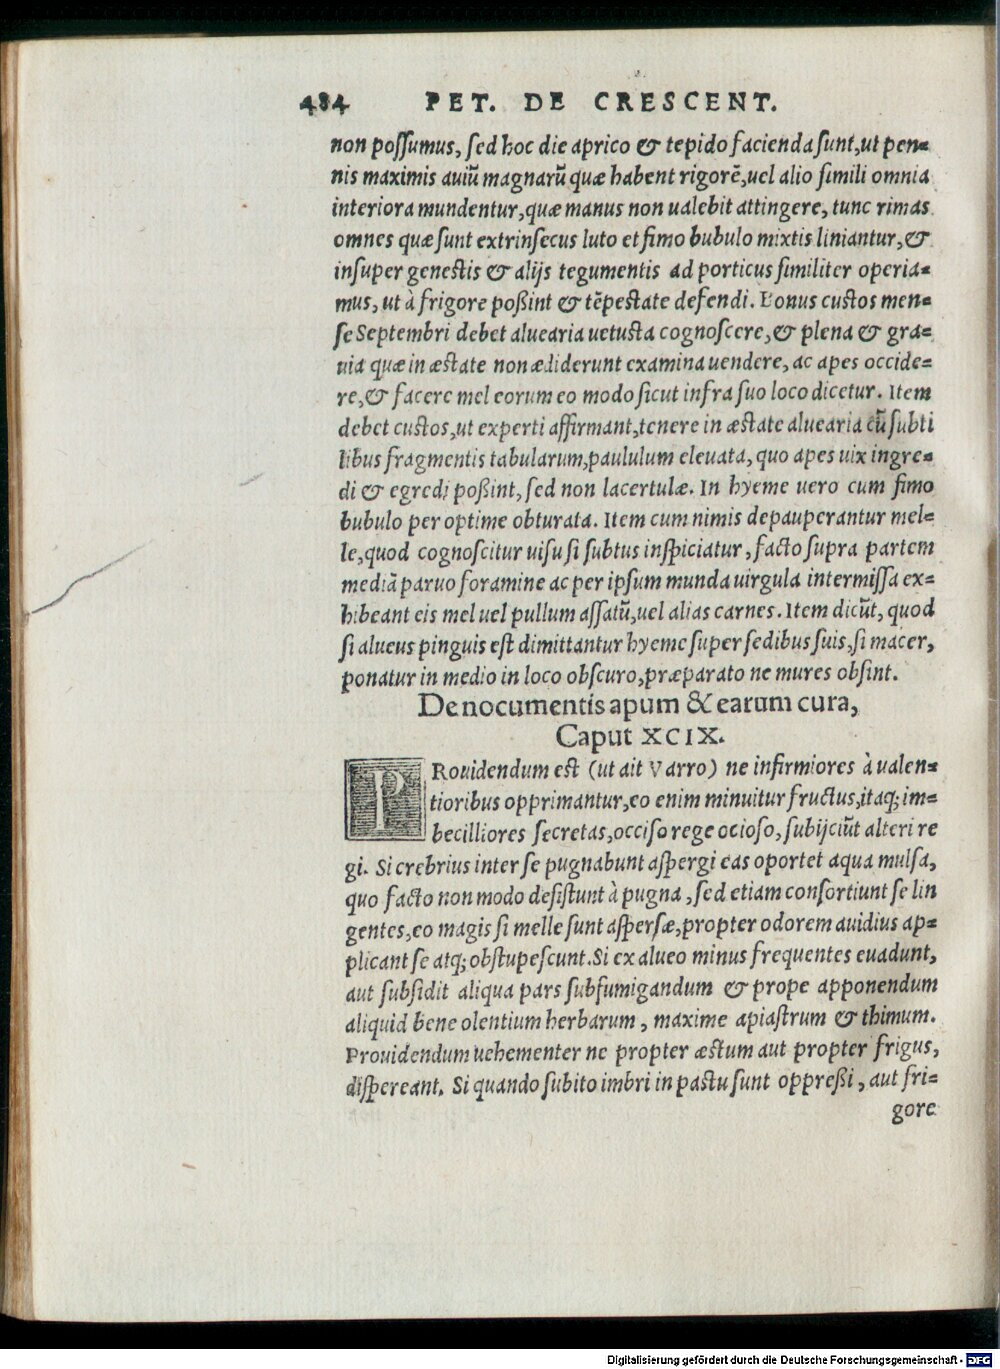 484 PET. DE CRESCENT.
non poſſumus, ſed hoc die aprico & tepido facienda ſunt, ut pen=
nis maximis auiũ magnarũ quæ habent rigorẽ, uel alio ſimili omnia
interiora mundentur, quæ manus non ualebit attingere, tunc rimas
omnes quæ ſunt extrinſecus luto et fimo bubulo mixtis liniantur, &
inſuper geneſtis & alijs tegumentis ad porticus ſimiliter operia=
mus, ut à frigore poßint & tẽpeſtate defendi. Bonus cuſtos men=
ſe Septembri debet aluearia uetuſta cognoſcere, & plena & gra=
uia quæ in æſtate non ædiderunt examina uendere, ac apes occide=
re, & facere mel eorum eo modo ſicut infra ſuo loco dicetur. Item
debet cuſtos, ut experti affirmant, tenere in æſtate aluearia cũ ſubti
libus fragmentis tabularum, paululum eleuata, quo apes uix ingre=
di & egredi poßint, ſed non lacertulæ. In hyeme uero cum fimo
bubulo per optime obturata. Item cum nimis depauperantur mel=
le, quod cognoſcitur uiſu ſi ſubtus inſpiciatur, facto ſupra partem
mediã paruo foramine ac per ipſum munda uirgula intermiſſa ex=
hibeant eis mel uel pullum aſſatũ, uel alias carnes. Item dicũt, quod
ſi alueus pinguis eſt dimittantur hyeme ſuper ſedibus ſuis, ſi macer,
ponatur in medio in loco obſcuro, præparato ne mures obſint.
De nocumentis apum & earum cura,
Caput XCIX.
PRouidendum eſt (ut ait Varro) ne infirmiores à ualen=
tioribus opprimantur, eo enim minuitur fructus, itaq; im=
becilliores ſecretas, occiſo rege ocioſo, ſubijciũt alteri re
gi. Si crebrius inter ſe pugnabunt aſpergi eas oportet aqua mulſa,
quo facto non modo deſiſtunt à pugna, ſed etiam conſortiunt ſe lin
gentes, eo magis ſi melle ſunt aſperſæ, propter odorem auidius ap=
plicant ſe atq; obſtupeſcunt. Si ex alueo minus frequentes euadunt,
aut ſubſidit aliqua pars ſubfumigandum & prope apponendum
aliquid bene olentium herbarum, maxime apiaſtrum & thimum.
Prouidendum uehementer ne propter æſtum aut propter frigus,
diſpereant. Si quando ſubito imbri in paſtu ſunt oppreßi, aut fri=
gore
Digitalisierung gefördert durch die Deutsche Forschungsgemeinschaft - DFG